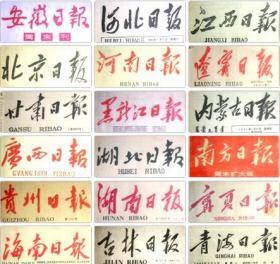 安徽日报
周末刊
河北日报
HEBEI RIBAO
江西日报
JIANGXI RIBAO
北京日报
河南日报
HENAN RIBAO
辽宁日报
LIAONING RIBAO
甘肃日报
GANSU RIBAO
黑龙江日报
内蒙古日报
广西日报
GVANGJSIH YIZBAU
湖北日报
HUBEI RIBAO
南方日报
周末扩大版
贵州日报
GUIZHOU RIBAO
湖南日报
HUNAN RIBAO
宁夏日报
NINGXIA RIBAO
海南日报
吉林日报
JILIN RIBAO
青海日报
QINGHAI RIBAO